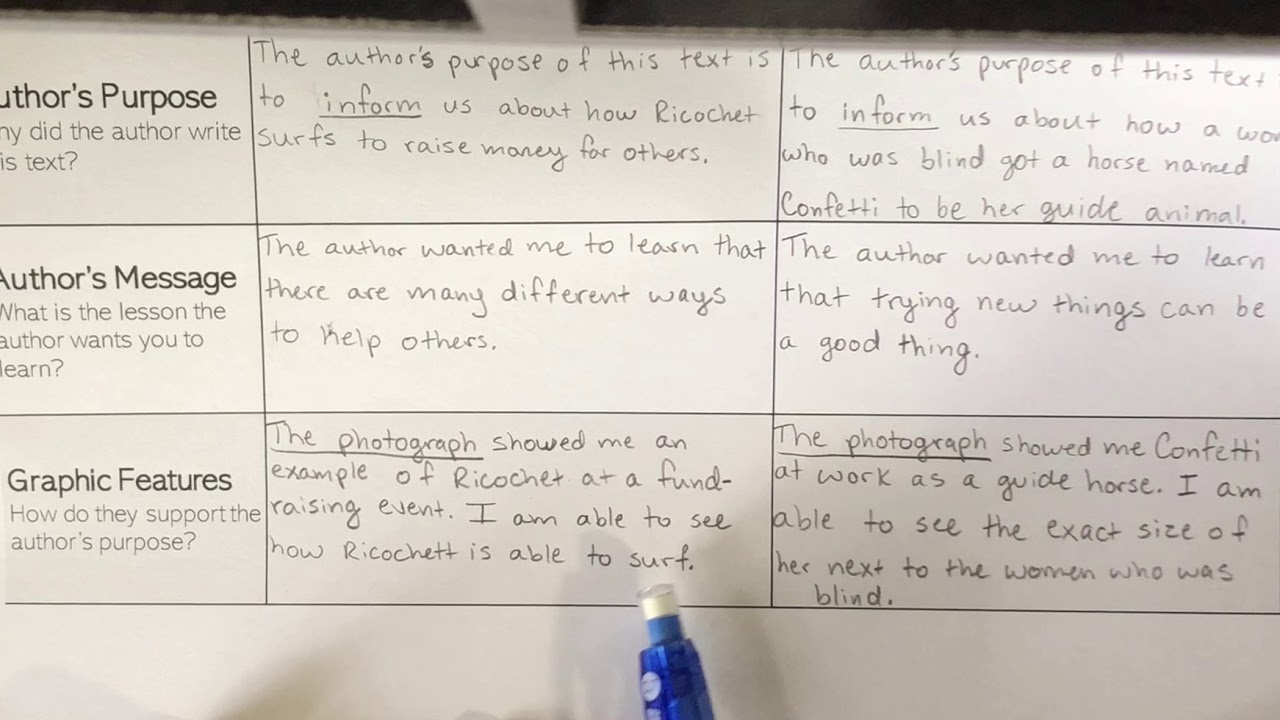 uthor's Purpose
hy did the author write
is text?
The author's purpose of this text is
to inform us about how Ricochet
surfs to raise money for others.
The author's purpose of this text
to inform us about how a wo
who was blind got a horse named
Confetti to be her guide animal.
Author's Message
What is the lesson the
author wants you to
learn?
The author wanted me to learn that
there are many different ways
to help others.
The author wanted me to learn
that trying new things can be
a good thing.
Graphic Features
How do they support the
author's purpose?
The photograph showed me an
example of Ricochet at a fund-
raising event. I am able to see
how Ricochett is able to surf.
The photograph showed me Confetti
at work as a guide horse. I am
able to see the exact size of
her next to the women who was
blind.